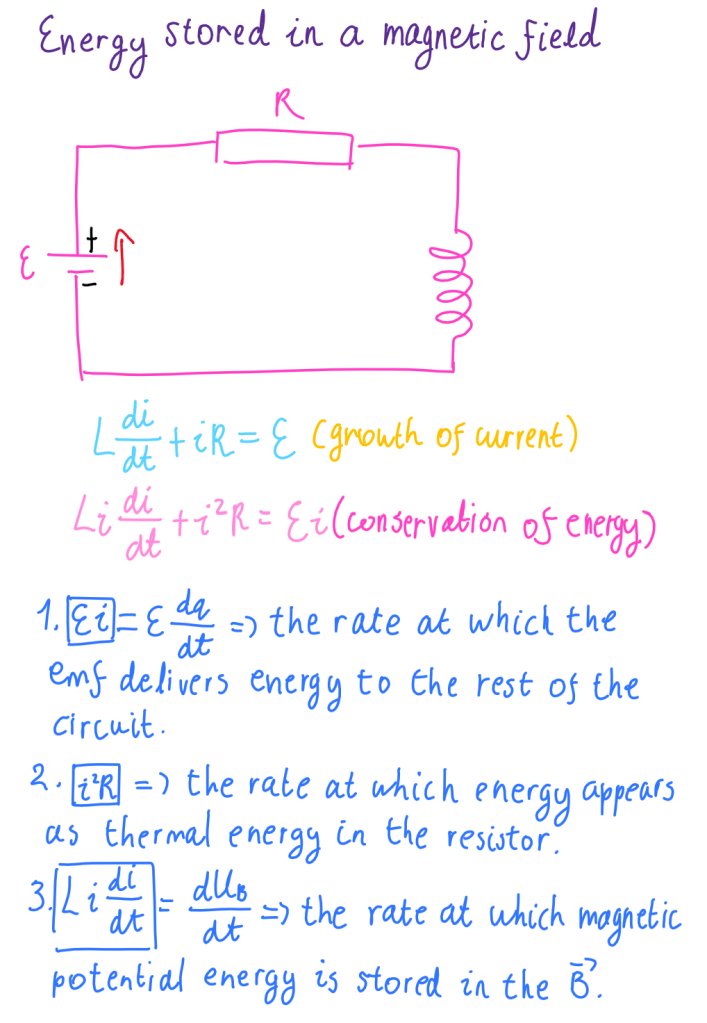 Energy stored in a magnetic field
R
+
ℰ
-
L di/dt + iR = ℰ (growth of current)
Li di/dt + i²R = ℰi (conservation of energy)
1. ℰi = ℰ dq/dt => the rate at which the
emf delivers energy to the rest of the
circuit.
2. i²R => the rate at which energy appears
as thermal energy in the resistor.
3. Li di/dt = dU_B/dt => the rate at which magnetic
potential energy is stored in the B⃗.